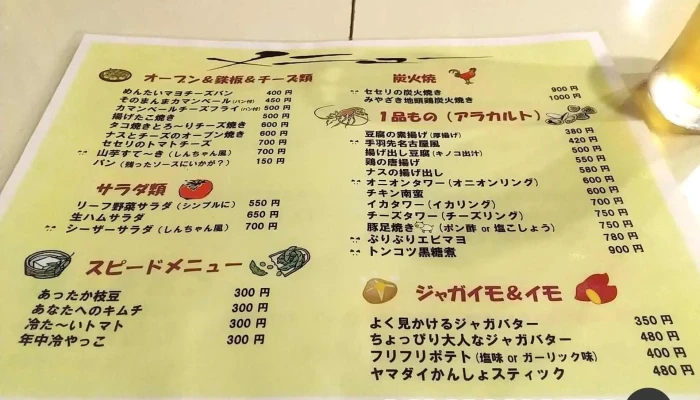 メニュー
オーブン＆鉄板＆チーズ類
めんたいマヨチーズパン 400円
そのまんまカマンベール(パン付) 450円
カマンベールチーズフライ(パン付) 500円
揚げたこ焼き 500円
タコ焼きとろ～りチーズ焼き 600円
ナスとチーズのオーブン焼き 600円
セセリのトマトチーズ 700円
山芋すて～き(しんちゃん風) 700円
パン(残ったソースにいかが？) 150円
サラダ類
リーフ野菜サラダ(シンプルに) 550円
生ハムサラダ 650円
シーザーサラダ(しんちゃん風) 700円
スピードメニュー
あったか枝豆 300円
あなたへのキムチ 300円
冷た～いトマト 300円
年中冷やっこ 300円
炭火焼
セセリの炭火焼き 900円
みやざき地頭鶏炭火焼き 1000円
1品もの(アラカルト)
豆腐の素揚げ(厚揚げ) 380円
手羽先名古屋風 420円
揚げ出し豆腐(キノコ出汁) 500円
鶏の唐揚げ 550円
ナスの揚げ出し 580円
オニオンタワー(オニオンリング) 600円
チキン南蛮 600円
イカタワー(イカリング) 700円
チーズタワー(チーズリング) 750円
豚足焼き(ポン酢 or 塩こしょう) 750円
ぷりぷりエビマヨ 780円
トンコツ黒糖煮 900円
ジャガイモ＆イモ
よく見かけるジャガバター 350円
ちょっぴり大人なジャガバター 480円
フリフリポテト(塩味 or ガーリック味) 400円
ヤマダイかんしょスティック 480円